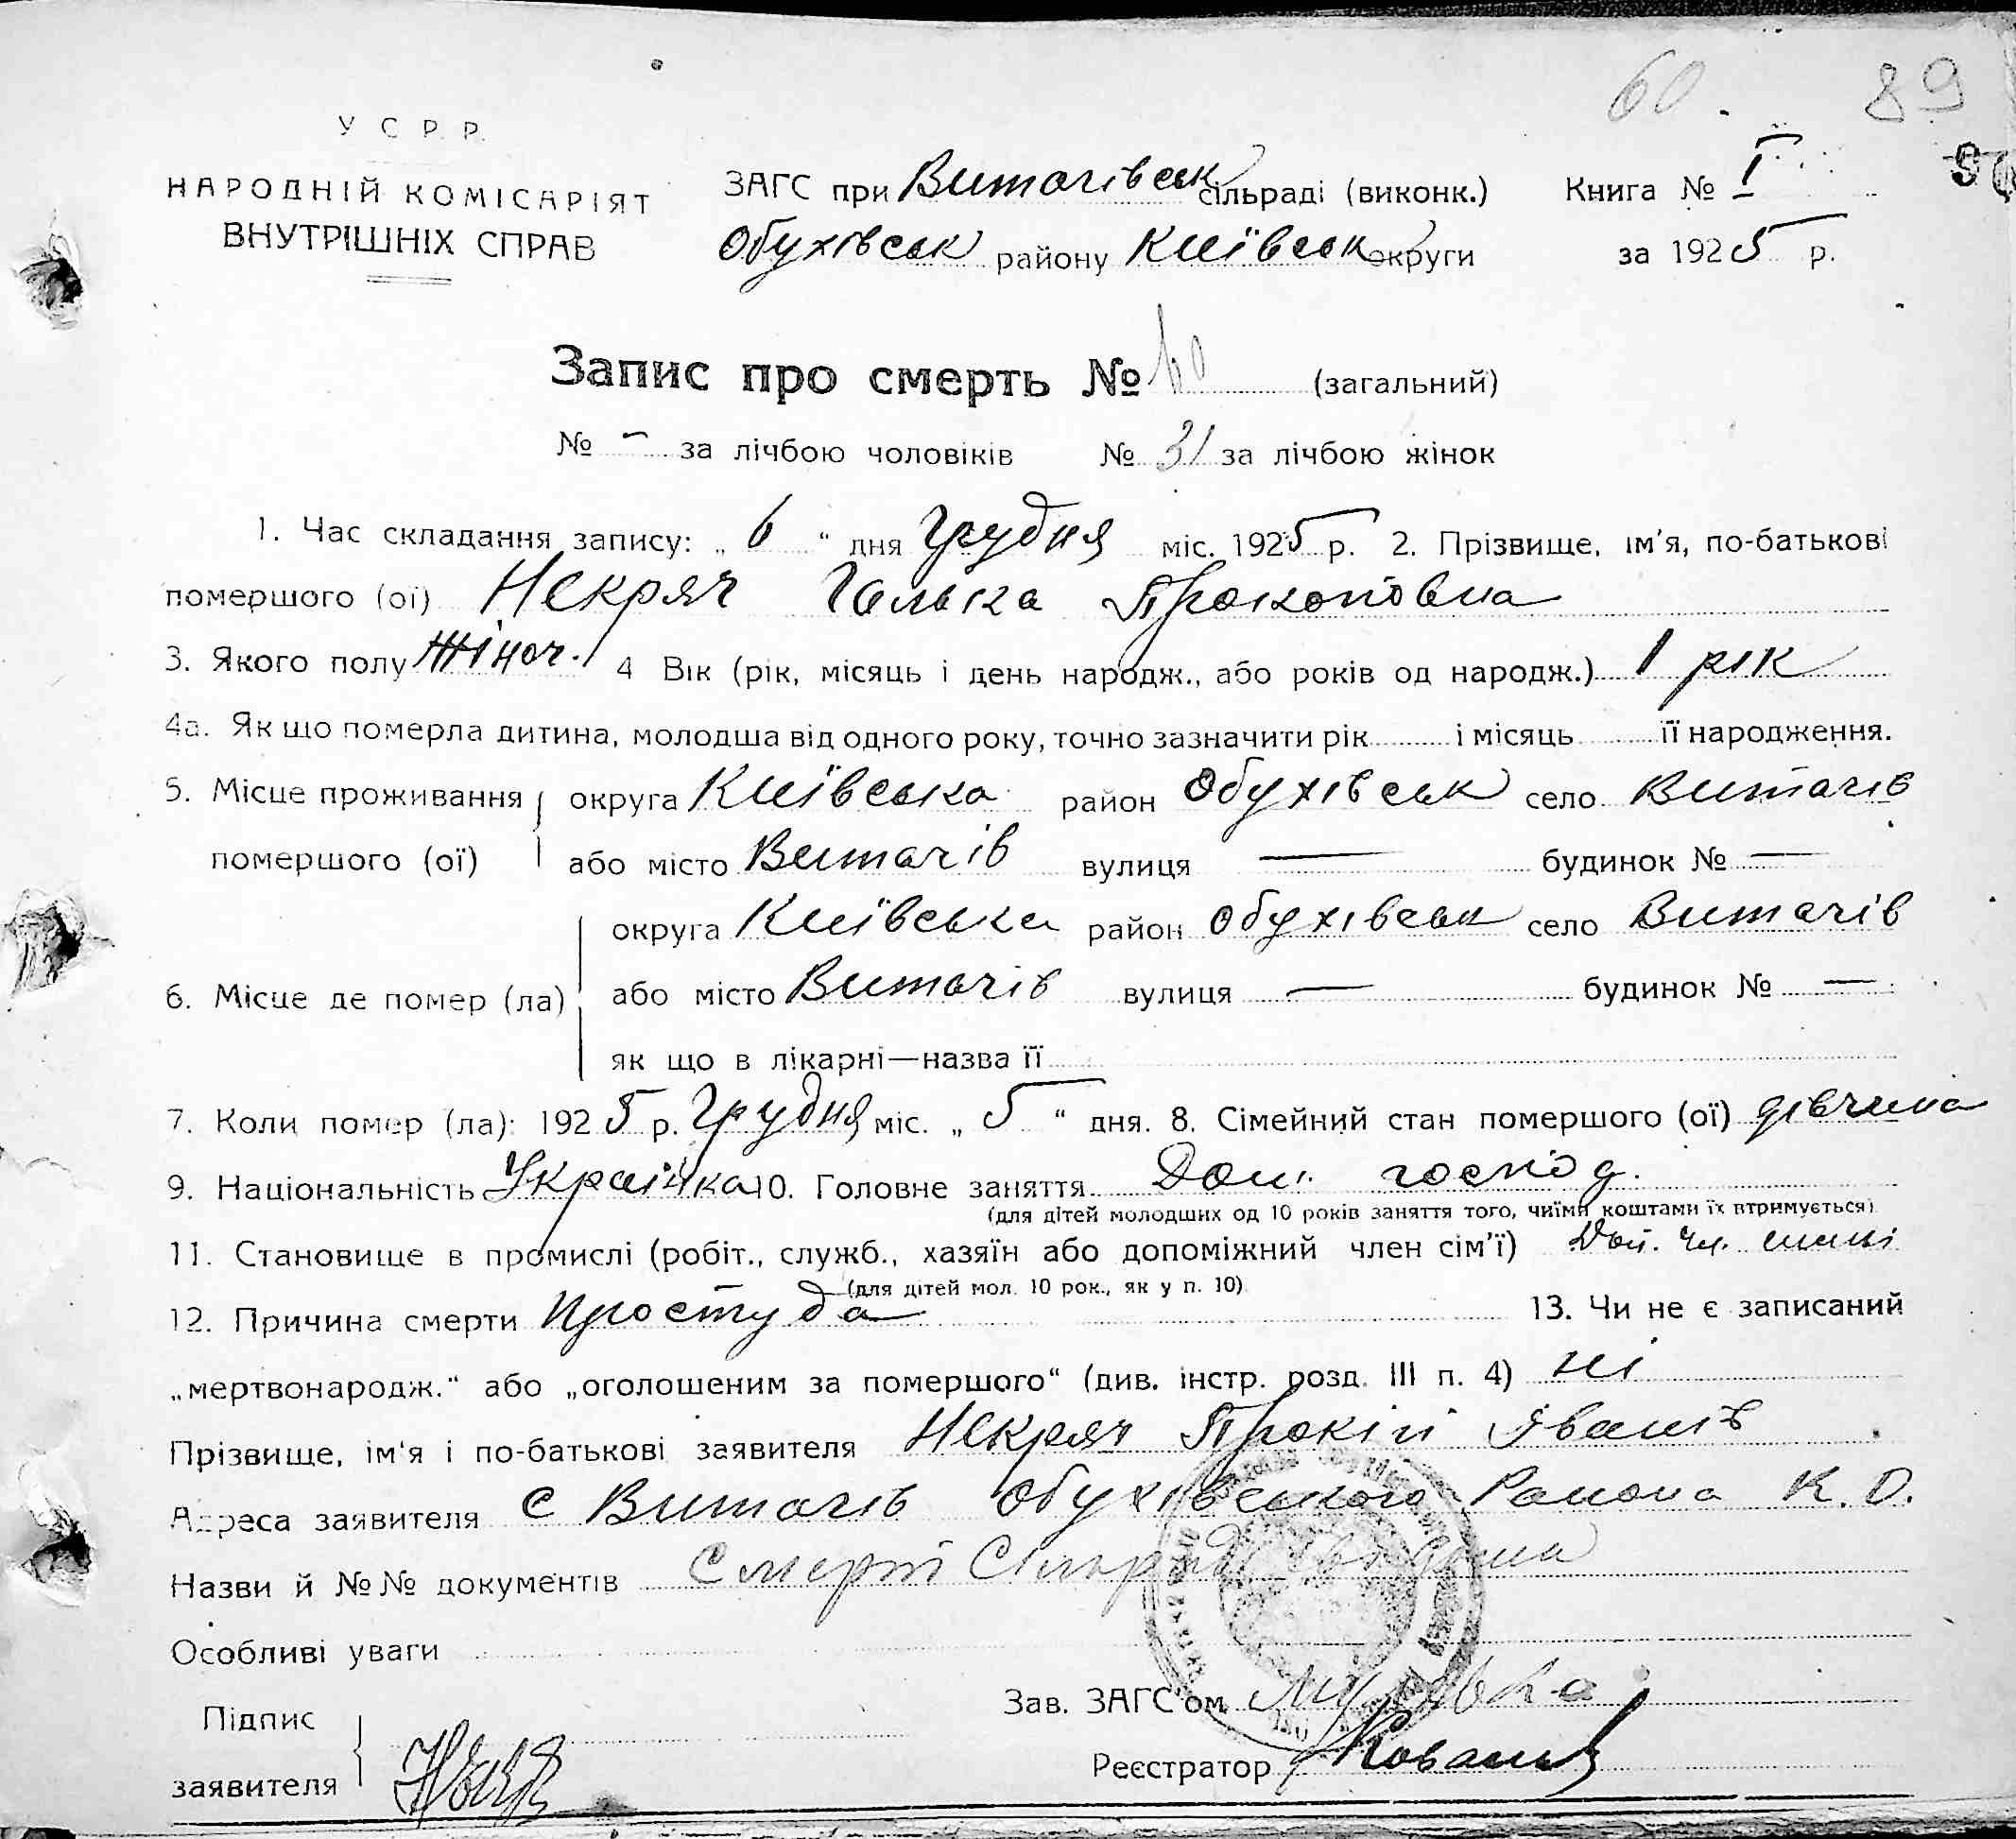 60. 89
У С Р Р.
НАРОДНІЙ КОМІСАРІЯТ
ВНУТРІШНІХ СПРАВ
ЗАГС при Витачівськ сільраді (виконк.) Книга № I
Обухівськ району Київськ округи за 1925 р.
Запис про смерть № 60 (загальний)
№ – за лічбою чоловіків № 31 за лічбою жінок
1. Час складання запису: „ 6 “ дня Грудня міс. 1925 р. 2. Прізвище, ім'я, по-батькові
помершого (ої) Некряч Галька Прокоповна
3. Якого полу Жіноч. 4 Вік (рік, місяць і день народж., або років од народж.) 1 рік
4а. Як що померла дитина, молодша від одного року, точно зазначити рік і місяць її народження.
5. Місце проживання округа Київська район Обухівськ село Витачів
помершого (ої) або місто Витачів вулиця — будинок № —
округа Київська район Обухівськ село Витачів
6. Місце де помер (ла) або місто Витачів вулиця — будинок № —
як що в лікарні—назва її
7. Коли помер (ла): 1925 р. Грудня міс. „ 5 “ дня. 8. Сімейний стан помершого (ої) дівчина
9. Національність Українка 10. Головне заняття Дом. господ.
(для дітей молодших од 10 років заняття того, чиїми коштами їх втримується)
11. Становище в промислі (робіт., служб., хазяїн або допоміжний член сім'ї) чл.
(для дітей мол. 10 рок., як у п. 10)
12. Причина смерти Простуда 13. Чи не є записаний
„мертвонародж.“ або „оголошеним за помершого“ (див. інстр. розд. III п. 4) ні
Прізвище, ім'я і по-батькові заявителя Некряч Прокіп Іванів
Адреса заявителя с Витачів Обухівського Района К. О.
Назви й №№ документів Смерт
Особливі уваги
Підпис
заявителя
Зав. ЗАГС'ом
Реєстратор